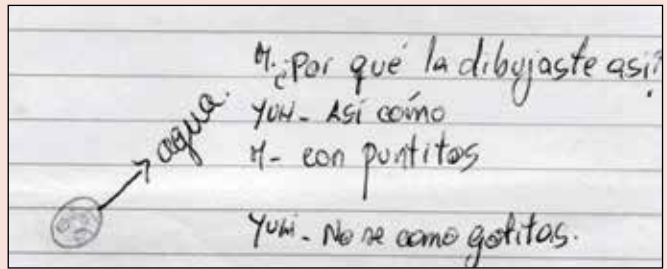 M. ¿Por qué la dibujaste así?
YUH- Así cómo
M- con puntitos
agua.
YUhi- No se como gotitas.